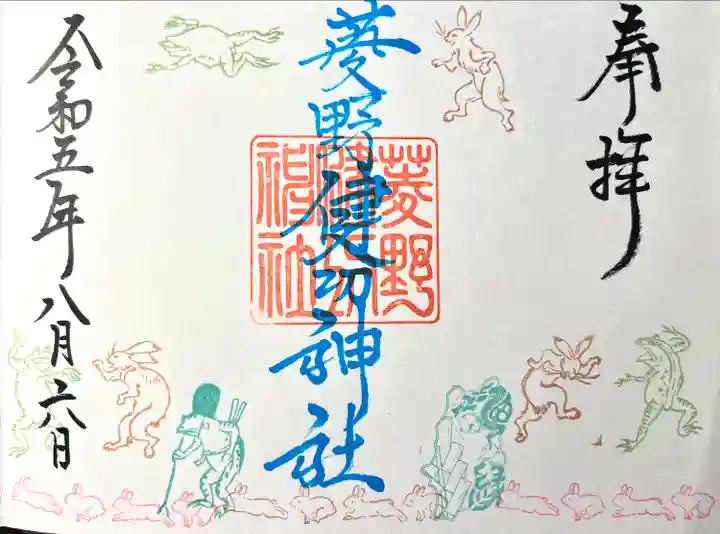 奉拝
菱野健功神社
令和五年八月六日
菱野
健功
神社